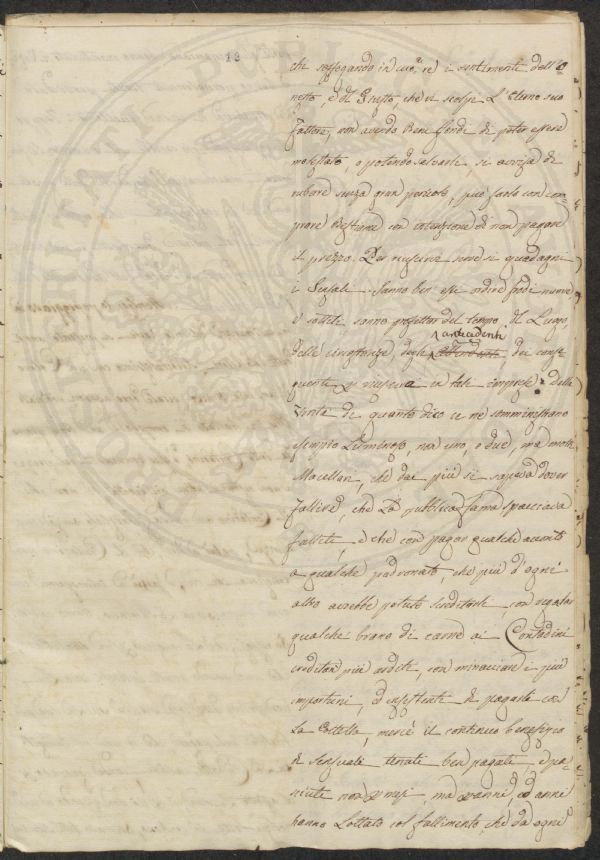 13
che soffogando in cuore i sentimenti dell'O-
nesto, e del Giusto, che vi scolpì L'Eterno suo
Fattore, non avendo Beni fondi di poter essere
molestato, o potendo salvarle, si avvisa di
rubare senza gran pericolo, può farlo con com-
prare Bestiame con intenzione di non pagare
il prezzo. Per riuscirvi deve si guadagni
i Sensali. Sanno ben essi ordire frodi nuove,
e sottili, sanno profittar del tempo, del Luogo,
delle circostanze, degli antecedenti, dei conse-
guenti per riuscire in tale impresa. Della
Verità di quanto dico ce ne somministrano
esempio Luminoso, non uno, o due, ma molti
Macellari, che dai più si sapeva dover
fallire, che La pubblica fama spacciava
falliti, e che con pagar qualche acconto
a qualche padronato, che più d'ogni
altro avrebbe potuto screditarli, con regalar
qualche brano di carne ai Contadini
creditori più arditi, con minacciare i più
importuni, ed insistenti di pagarli col
La Coltella, mercè il continuo benefizio
di sensuali tenuti ben pagati, e pa-
sciuti non per mesi, ma per anni, ed anni
hanno Lottato col fallimento, che da ogni